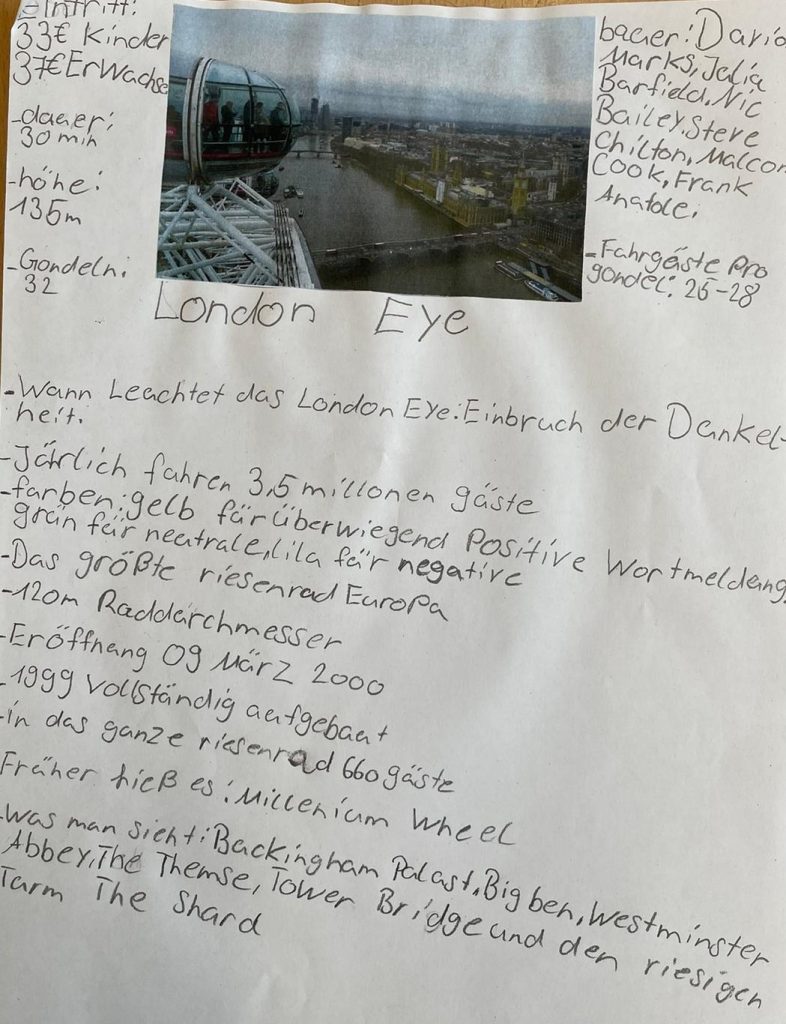 Eintritt:
33€ Kinder
37€ Erwachse
-dauer:
30 min
-höhe:
135m
-Gondeln:
32
bauer: David
Marks, Julia
Barfield, Nic
Bailey, Steve
Chilton, Malcom
Cook, Frank
Anatole.
-Fahrgäste Pro
gondel: 25-28
London Eye
-Wann Leuchtet das London Eye: Einbruch der Dunkel-
heit.
-Järlich fahren 3,5 millonen gäste
-farben: gelb für überwiegend Positive Wortmeldung,
grün für neutrale, lila für negative
-Das größte riesenrad Europa
-120m Raddurchmesser
-Eröffnung 09 März 2000
-1999 vollständig aufgebaut
-in das ganze riesenrad 660 gäste
Früher hieß es: Millenium Wheel
-was man sieht: Buckingham Palast, Big ben, Westminster
Abbey, The Themse, Tower Bridge und den riesigen
Turm The Shard